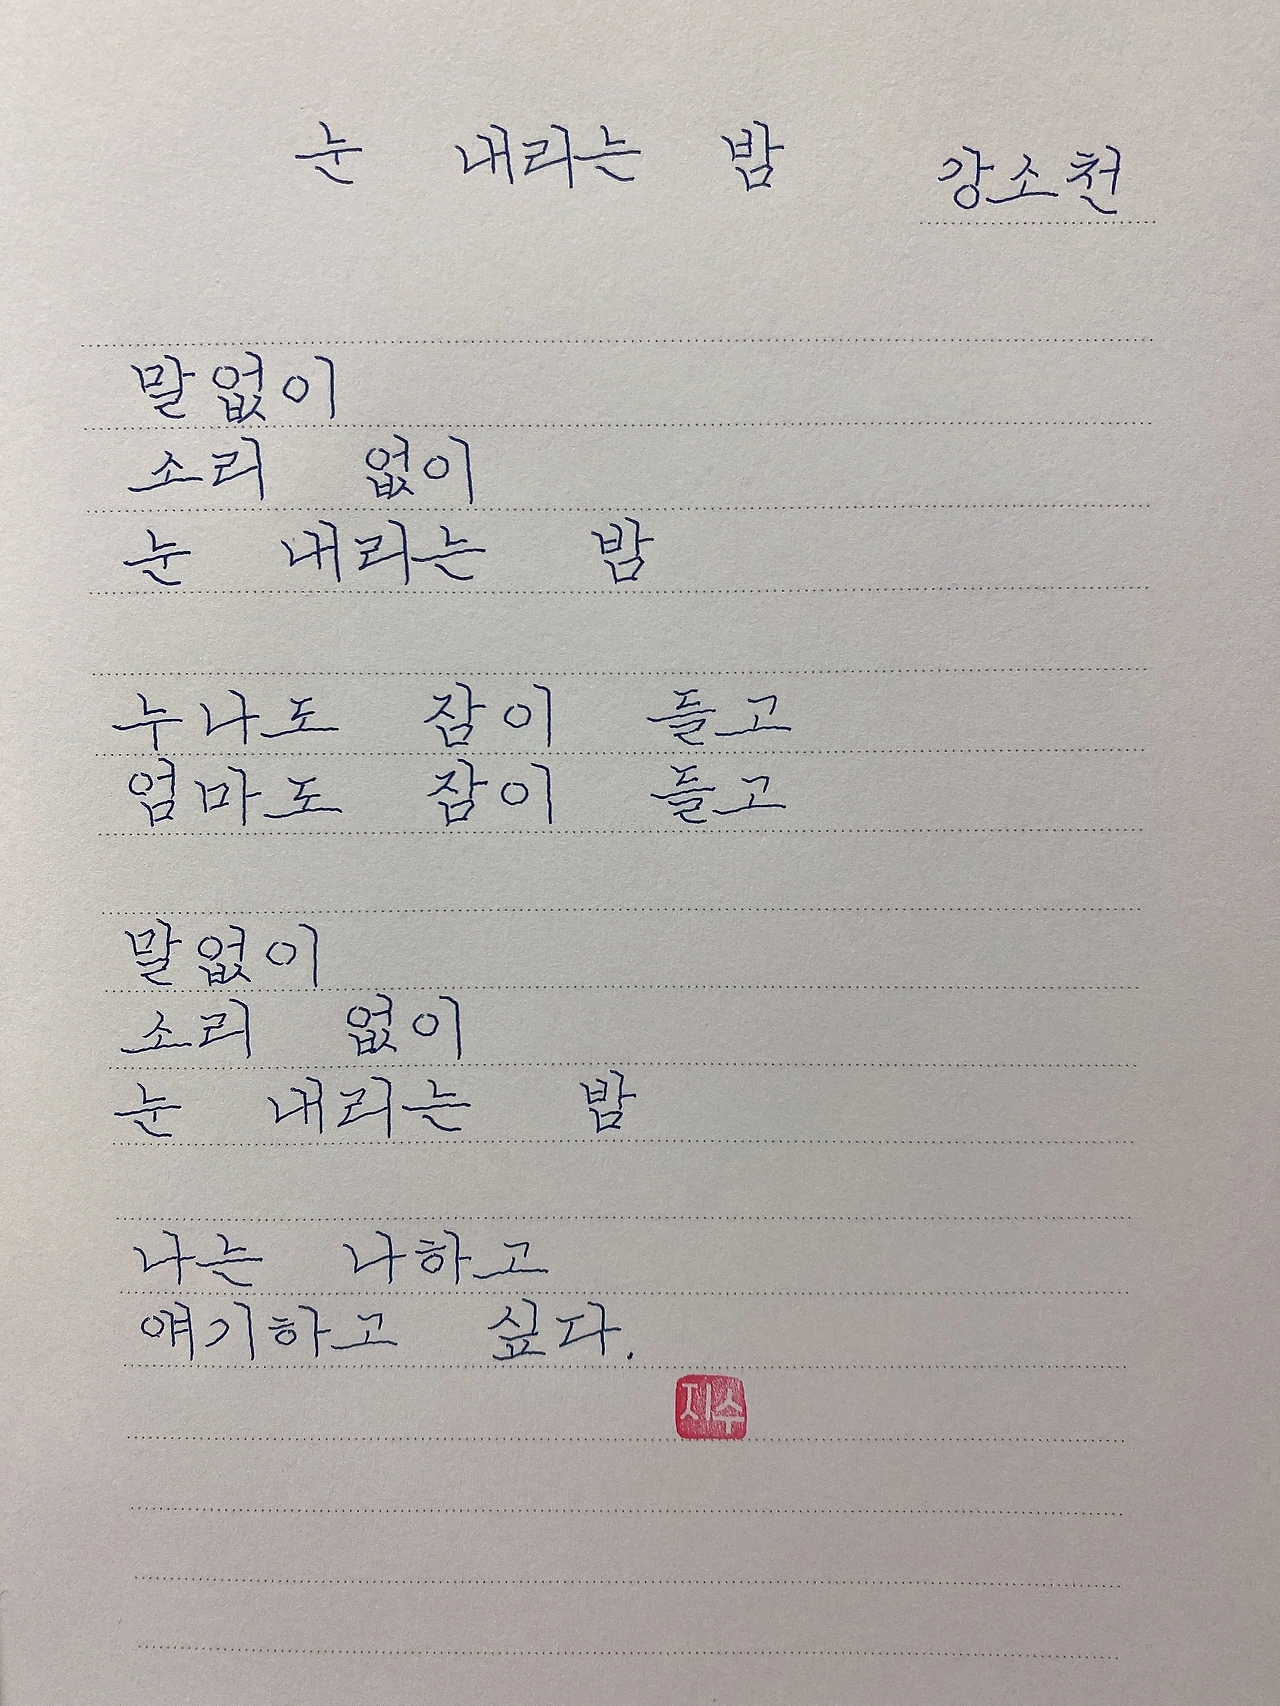 눈 내리는 밤 강소천
말없이
소리 없이
눈 내리는 밤
누나도 잠이 들고
엄마도 잠이 들고
말없이
소리 없이
눈 내리는 밤
나는 나하고
얘기하고 싶다.
지수